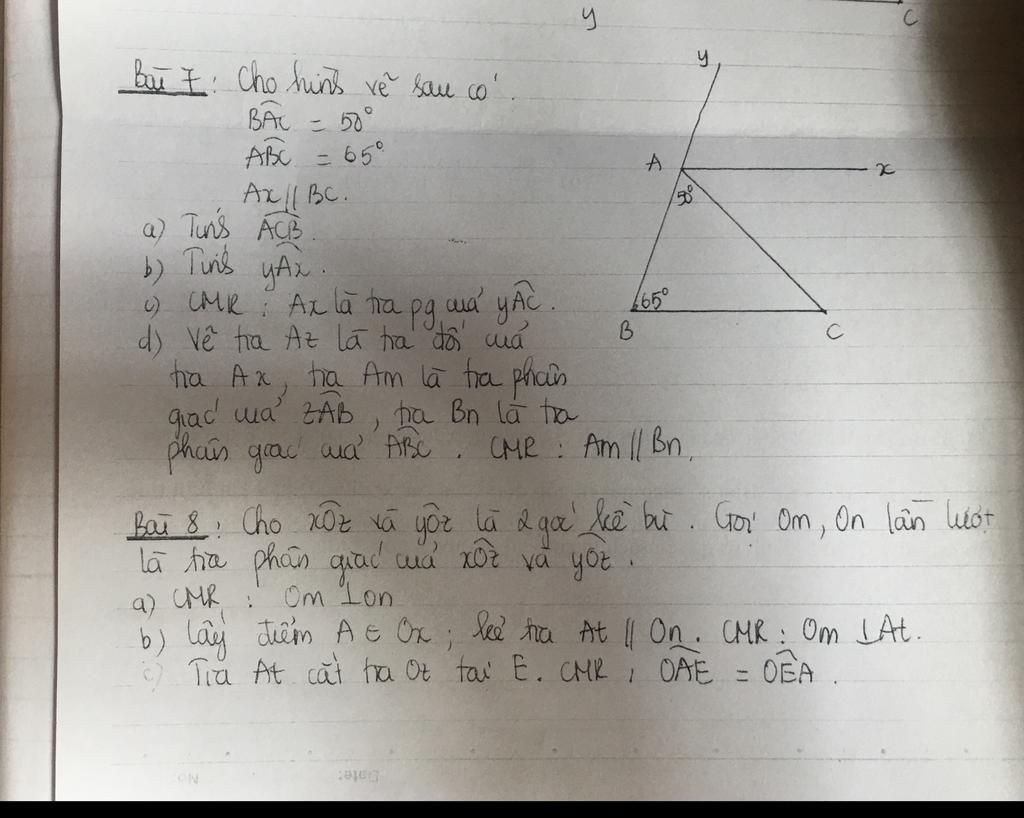 y C
Bài 7: Cho hình vẽ sau có.
BÂC = 50°
ABC = 65°
Ax // BC.
a) Tính ACB.
b) Tính yÂx.
c) CMR: Ax là tia pg của yÂC.
d) Vẽ tia Az là tia đối của
tia Ax, tia Am là tia phân
giác của zÂB, tia Bn là tia
phân giác của ABC. CMR: Am // Bn.
y
A x
50°
65°
B C
Bài 8: Cho xÔz và yÔz là 2 góc kề bù. Gọi Om, On lần lượt
là tia phân giác của xÔz và yÔz.
a) CMR: Om ⊥ On
b) Lấy điểm A ∈ Ox; kẻ tia At // On. CMR: Om ⊥ At.
c) Tia At cắt tia Oz tại E. CMR: OÂE = OÊA.
No Date: